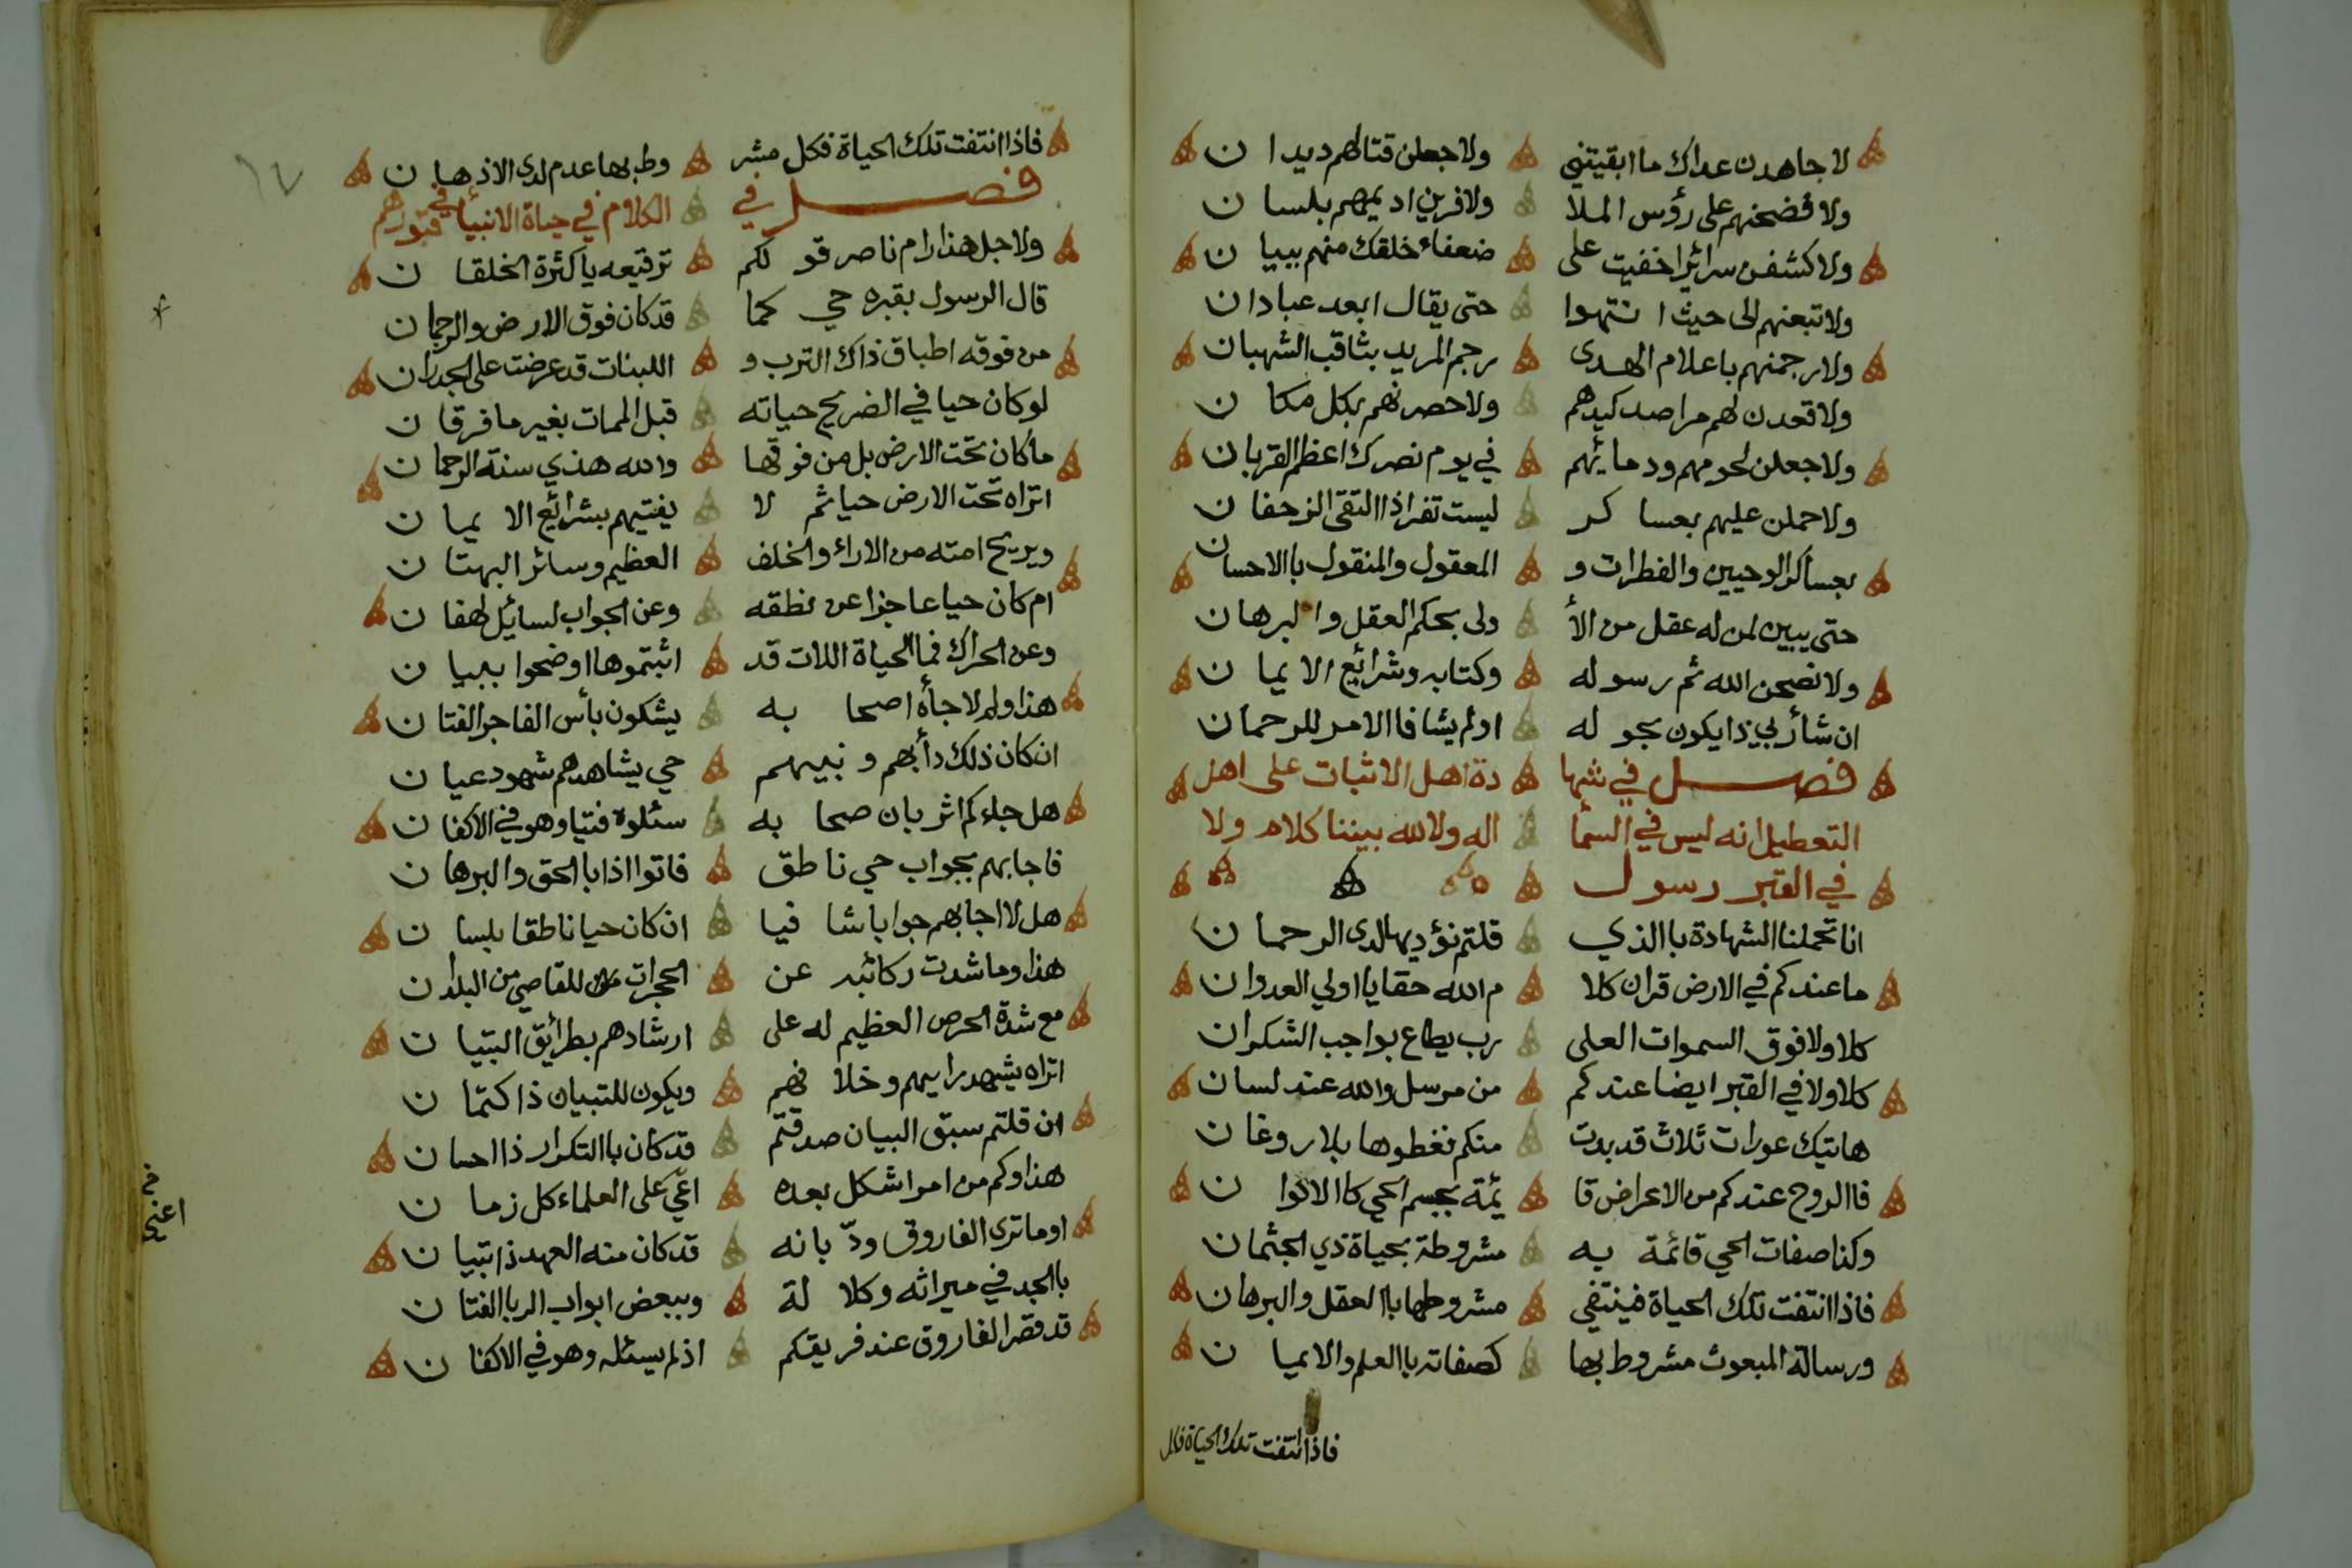 لاجاهدن عداك ما ابقيتني ولاجعلن قتالهم ديدا ن
ولا فضحنهم على رؤس الملا ولافرين اديمهم بلسا ن
ولاكشفن سرائرا خفيت على ضعفاء خلقك منهم ببيا ن
ولاتبعنهم الى حيث انتهوا حتى يقال ابعد عبادان
ولارجمنهم باعلام الهدى رجم المريد بثاقب الشهبان
ولاقعدن لهم مراصد كيدهم ولاحصرنهم بكل مكا ن
ولاجعلن لحومهم ودمائهم في يوم نصرك اعظم القربان
ولاحملن عليهم بعساكر ليست تفر اذا التقى الزحفا ن
بعساكر الوحيين والفطرات و المعقول والمنقول باالاحسان
حتى يبين لمن له عقل من الأ ولى بحكم العقل والبرهان
ولانصحن الله ثم رسوله وكتابه وشرائع الايما ن
ان شأ ربي ذا يكون بحوله اولم يشا فاالامر للرحمان
فصل في شهادة اهل الاثبات على اهل
التعطيل انه ليس في السمأ اله ولالله بيننا كلام ولا
في القبر رسول
انا تحملنا الشهادة باالذي قلتم نؤديها لدى الرحما ن
ما عندكم في الارض قران كلا م الله حقا يا اولي العدوان
كلا ولا فوق السموات العلى رب يطاع بواجب الشكران
كلا ولا في القبر ايضا عندكم من مرسل والله عند لسان
هاتيك عورات ثلاث قد بدت منكم فغطوها بلا روغا ن
فاالروح عندكم من الاعراض قا ئمة بجسم الحي كاالالوا ن
وكذا صفات الحي قائمة به مشروطة بحياة ذي الجثمان
فاذا انتفت تلك الحياة فينتفي مشروطها باالعقل والبرهان
ورسالة المبعوث مشروط بها كصفاته باالعلم والايما ن
فاذا انتفت تلك الحياة فكل
فاذا انتفت تلك الحياة فكل مشر وط بها عدم لدى الاذها ن
فصل في الكلام في حياة الانبيأ في قبورهم
ولاجل هذا رام ناصر قولكم ترقيعه يا كثرة الخلقا ن
قال الرسول بقبره حي كما قد كان فوق الارض والرجمان
من فوقه اطباق ذاك الترب و اللبنات قد عرضت على الجدران
لو كان حيا في الضريح حياته قبل الممات بغير ما فرقا ن
ما كان تحت الارض بل من فوقها والله هذي سنة الرحمان
اتراه تحت الارض حيا ثم لا يفتيهم بشرائع الايما ن
ويريح امته من الاراء والخلف العظيم وسائر البهتا ن
ام كان حيا عاجزا عن نطقه وعن الجواب لسائل لهفا ن
وعن الحراك فما الحياة اللات قد اثبتموها اوضحوا ببيا ن
هذا ولم لا جأه اصحابه يشكون بأس الفاجر الفتا ن
ان كان ذلك دأبهم ونبيهم حي يشاهدهم شهود عيا ن
هل جاءكم اثر بان صحابه سئلوه فتيا وهو في الاكفا ن
فاجابهم بجواب حي ناطق فاتوا اذا باالحق والبرها ن
هل لا اجابهم جوابا شافيا ان كان حيا ناطقا بلسا ن
هذا وما شدت ركائبه عن الحجرات للقاصي من البلدان
مع شدة الحرص العظيم له على ارشادهم بطرائق التبيا ن
اتراه يشهد رايهم وخلافهم ويكون للتبيان ذا كتما ن
ان قلتم سبق البيان صدقتم قد كان باالتكرار ذا احسا ن
هذا وكم من امر اشكل بعده اعي على العلماء كل زما ن
اوما ترى الفاروق ودّ بانه قد كان منه العهد ذا تبيا ن
باالجد في ميراثه وكلالة وببعض ابواب الربا الفتا ن
قد قصر الفاروق عند فريقكم اذ لم يسئله وهو في الاكفا ن
١٧